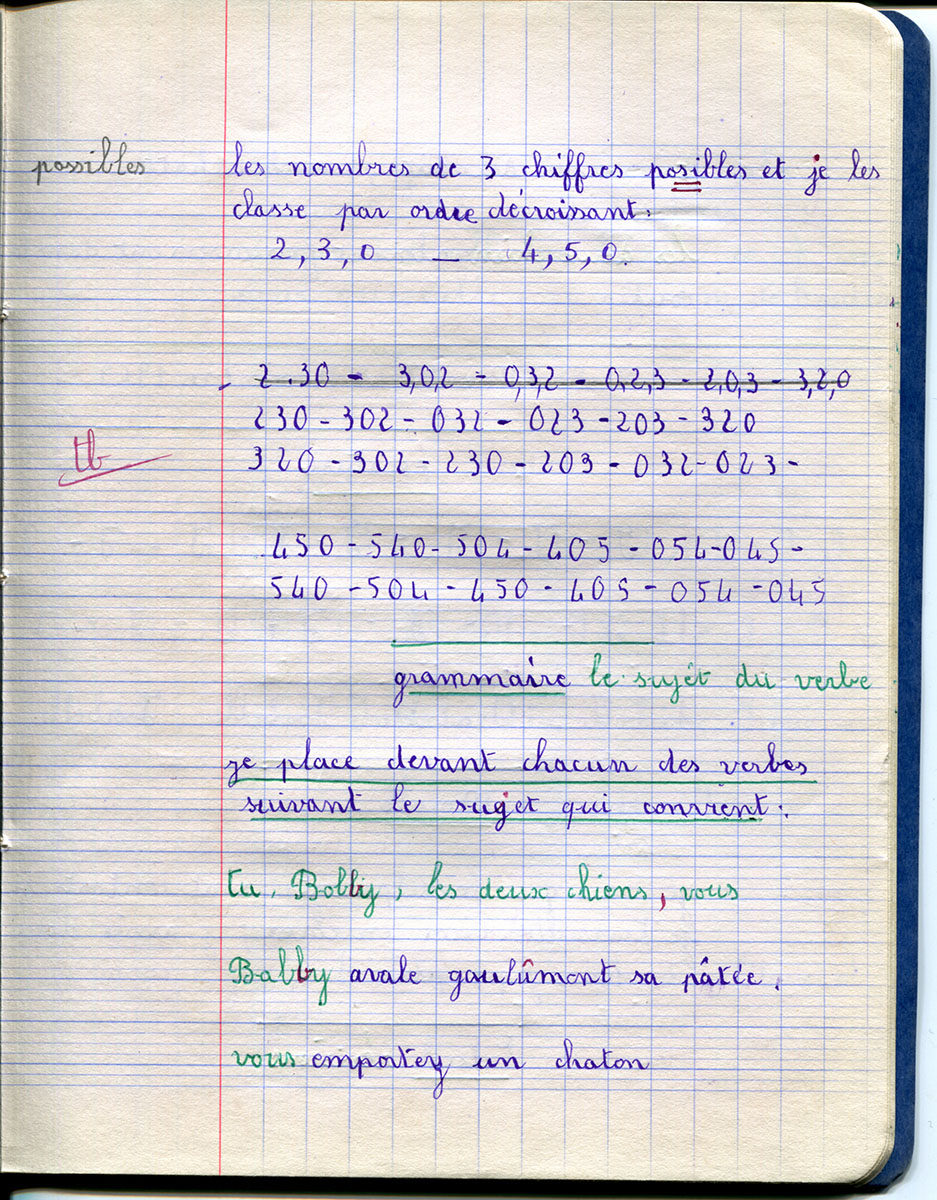 possibles
les nombres de 3 chiffres posibles et je les
classe par ordre décroissant.
2, 3, 0 — 4, 5, 0.
- 2.30 - 3,0,2 - 0,3,2 - 0,2,3 - 2,0,3 - 3,2,0
230 - 302 - 032 - 023 - 203 - 320
tb
320 - 302 - 230 - 203 - 032 - 023 -
450 - 540 - 504 - 405 - 054 - 045 -
540 - 504 - 450 - 405 - 054 - 045
grammaire le sujet du verbe
je place devant chacun des verbes
suivant le sujet qui convient :
tu, Bobby, les deux chiens, vous
Babby avale goulûment sa pâtée.
vous emportez un chaton